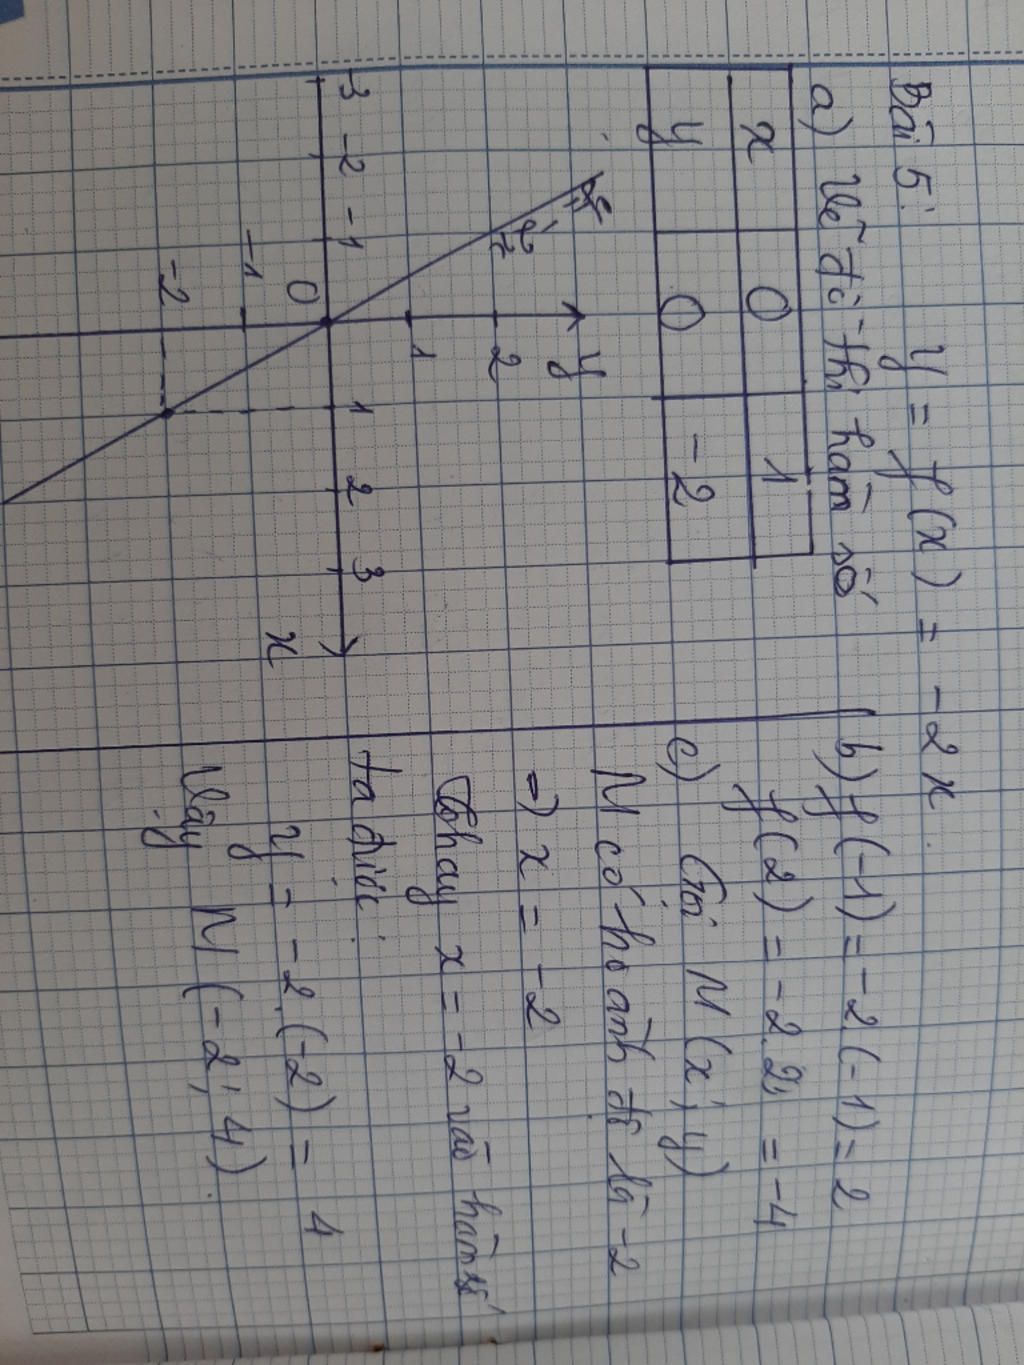 Bài 5: y = f(x) = -2x.
a) Vẽ đồ thị hàm số
x 0 1
y 0 -2
y
2
1
-3 -2 -1 0 1 2 3
x
-1
-2
b) f(-1) = -2.(-1) = 2
f(2) = -2.2 = -4
c) Gọi N(x; y)
N có hoành độ là -2
=> x = -2
Thay x = -2 vào hàm số
ta được:
y = -2.(-2) = 4
Vậy N(-2; 4).